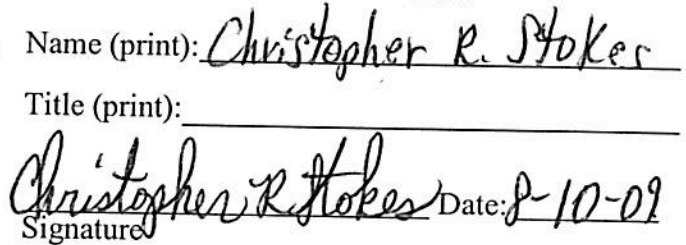 Name (print): Christopher R. Stokes
Title (print):
Christopher R. Stokes Date: 8-10-09
Signature